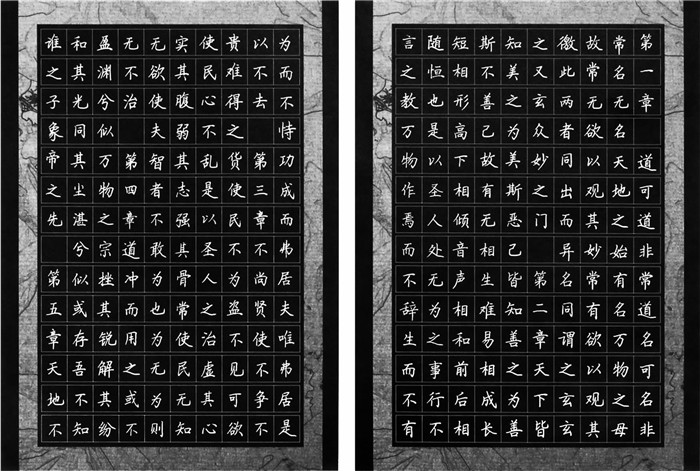 第一章 道可道非常道名可名非
常名无名天地之始有名万物之母
故常无欲以观其妙常有欲以观其
微此两者同出而异名同谓之玄玄
之又玄众妙之门 第二章天下皆
知美之为美斯恶己皆知善之为善
斯不善己故有无相生难易相成长
短相形高下相倾音声相和前后相
随恒也是以圣人处无为之事行不
言之教万物作焉而不辞生而不有
为而不恃功成而弗居夫唯弗居是
以不去 第三章不尚贤使不争不
贵难得之货使民不为盗不见可欲
使民心不乱是以圣人之治虚其心
实其腹弱其志强其骨常使民无知
无欲使夫智者不敢为也为无为则
无不治 第四章道冲而用之或不
盈渊兮似万物之宗挫其锐解其纷
和其光同其尘湛兮似或存吾不知
谁之子象帝之先 第五章天地不